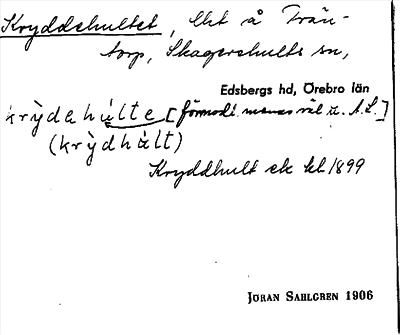 Kryddehultet, lht å Trän-
torp, Skagershults sn,
Edsbergs hd, Örebro län
krỳdehúlte [förmodl. menas väl u. A.L.]
(krỳdhu̇lt)
Kryddhult ek kb 1899
JÖRAN SAHLGREN 1906